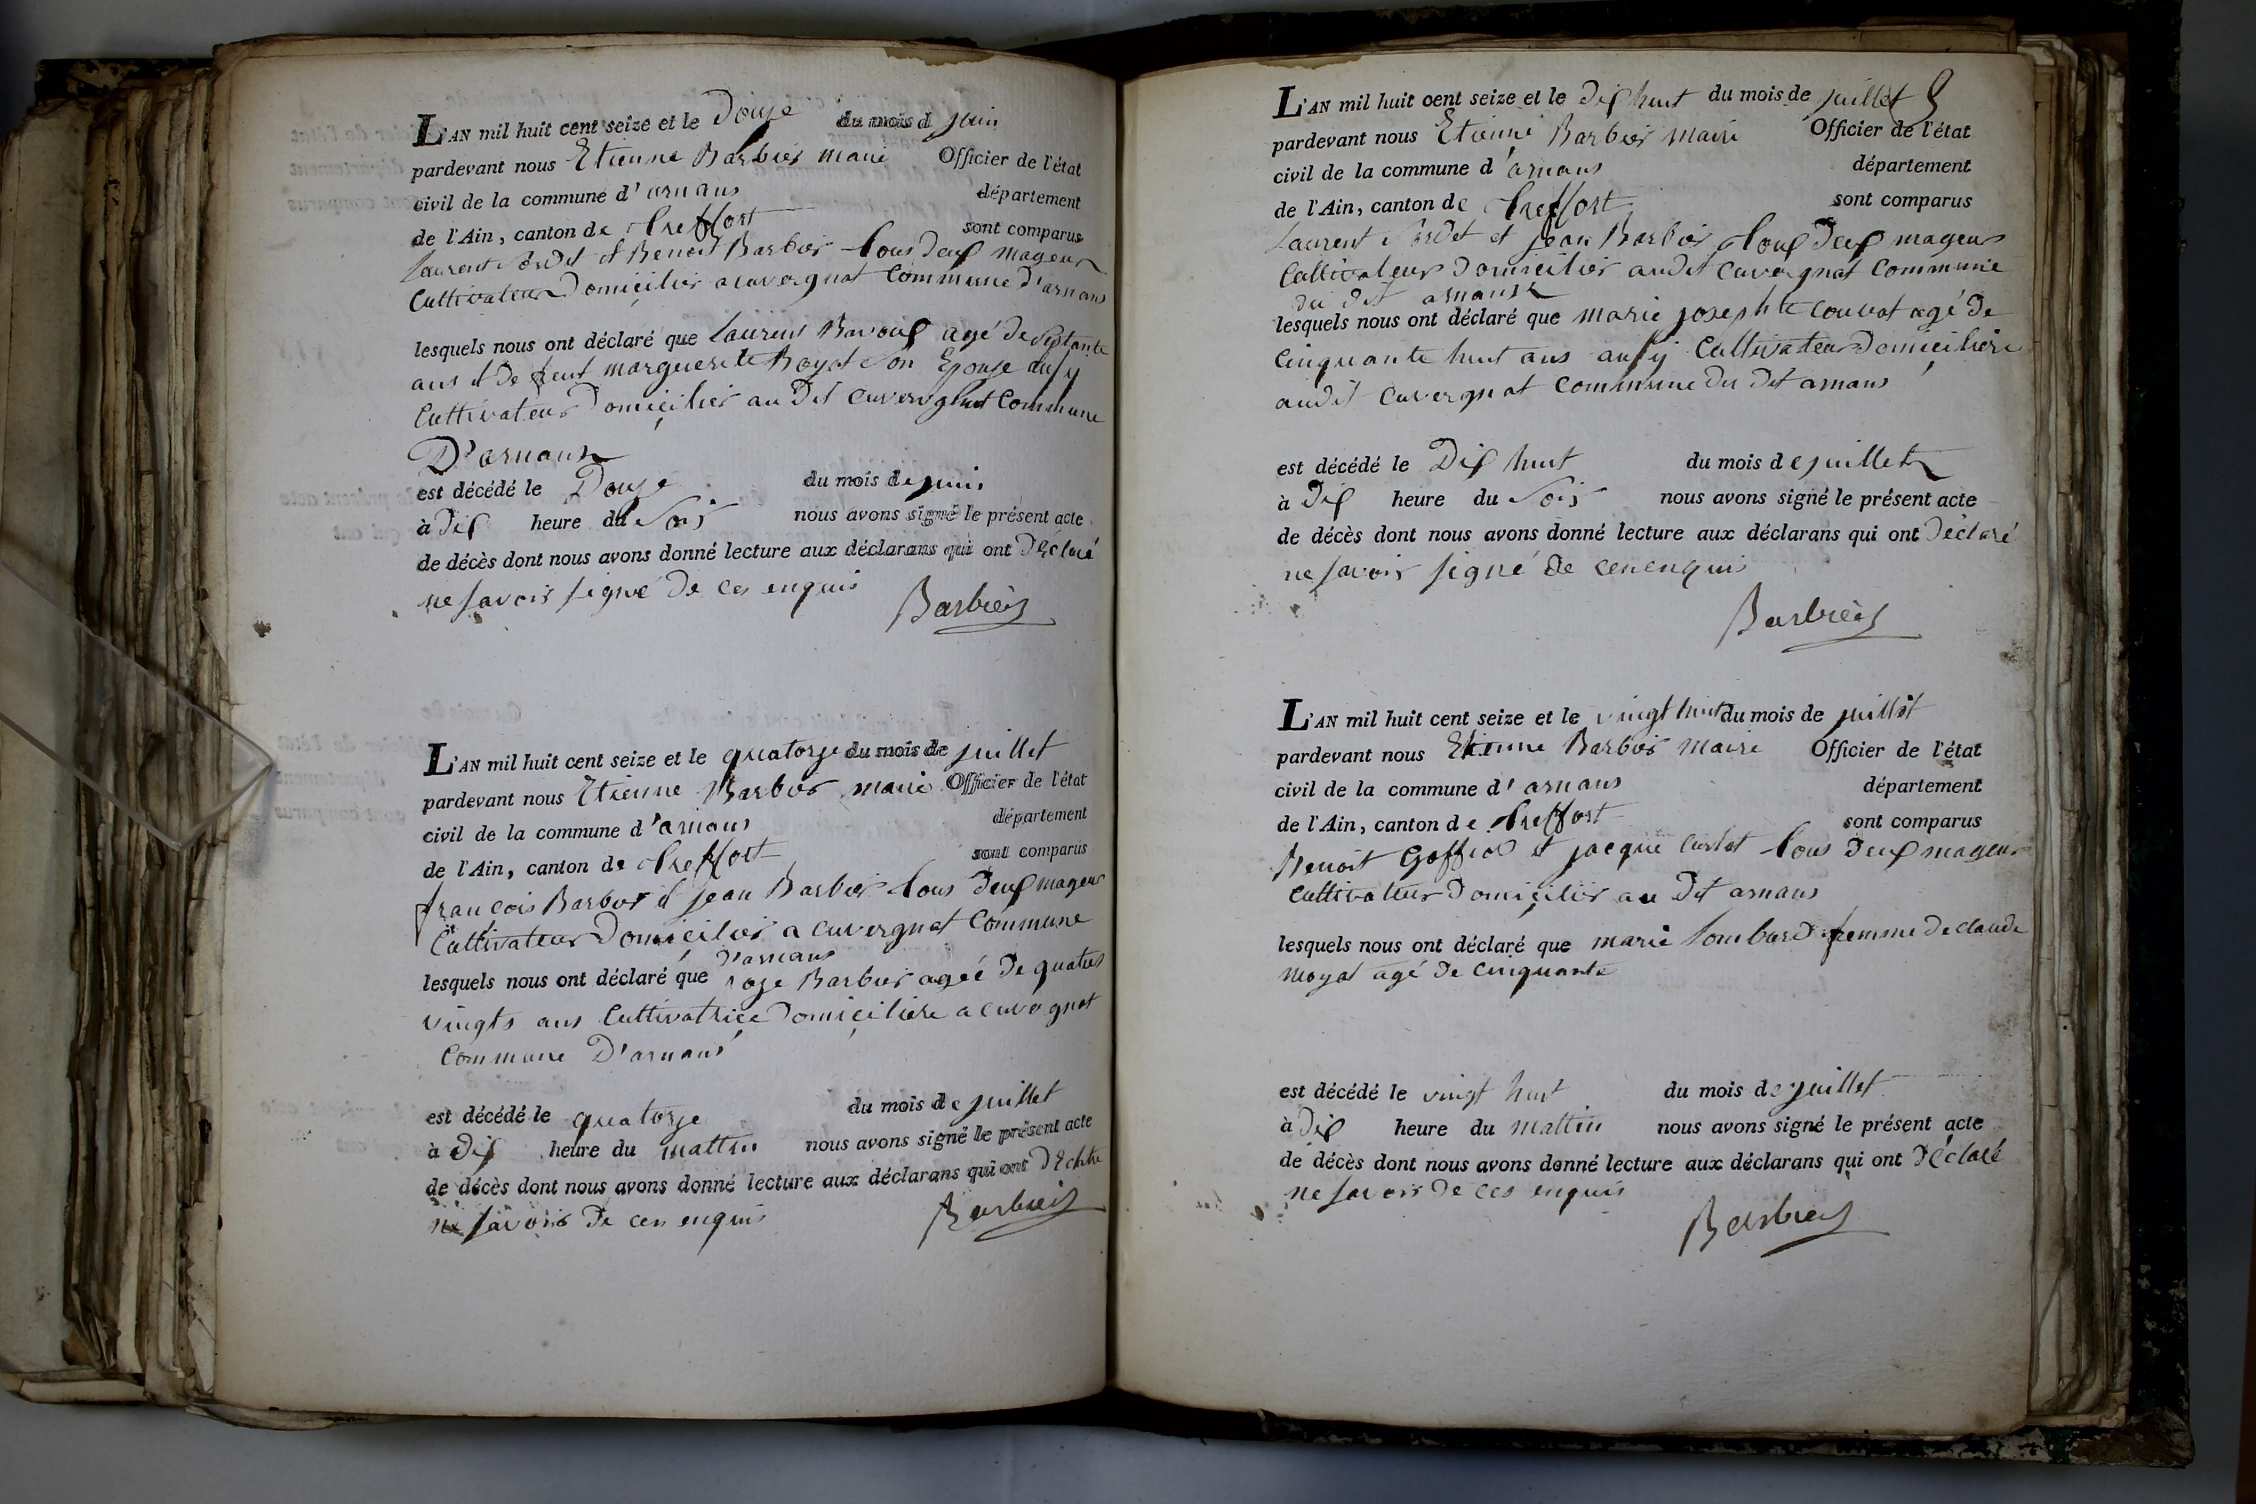 L'AN mil huit cent seize et le Douze du mois d juin
pardevant nous Etienne Barbier maire Officier de l'état
civil de la commune d'arnans département
de l'Ain, canton de treffort sont comparus
Laurent Sordet et Benoit Barbier tous deux mageur
Cultivateur Domicilier a cuvergnat Commune d'arnans
lesquels nous ont déclaré que laurent agé de septante
ans et de marguerite Royat son Epouse aussy
Cultivateur Domicilier au dit cuvergnat Commune
D'arnans
est décédé le Douze du mois de juin
à Dix heure du Soir nous avons signé le présent acte
de décès dont nous avons donné lecture aux déclarans qui ont Déclaré
ne savoir signé de ces enquis
Barbier
L'AN mil huit cent seize et le quatorze du mois de juillet
pardevant nous Etienne Barbier maire Officier de l'état
civil de la commune d'arnans département
de l'Ain, canton de treffort sont comparus
françois Barbier et jean Barbier tous deux mageur
Cultivateur Domicilier a cuvergnat Commune
d'arnans
lesquels nous ont déclaré que roze Barbier agée de quatres
vingts ans Cultivatrice Domiciliere a cuvergnat
Commune D'arnans
est décédé le quatorze du mois de juillet
à dix heure du mattin nous avons signé le présent acte
de décès dont nous avons donné lecture aux déclarans qui ont
ne savoir de ces enquis
Barbier
L'AN mil huit cent seize et le dix huit du mois de juillet
pardevant nous Etienne Barbier maire Officier de l'état
civil de la commune d'arnans département
de l'Ain, canton de treffort sont comparus
Laurent Sordet et jean Barbier tous deux mageur
Cultivateur Domicilier audit cuvergnat Commune
du dit arnans
lesquels nous ont déclaré que marie josephte couvat agé de
Cinquante huit ans aussy Cultivateur Domiciliere
audit cuvergnat Commune du dit arnans
est décédé le Dix huit du mois de juillet
à Dix heure du Soir nous avons signé le présent acte
de décès dont nous avons donné lecture aux déclarans qui ont déclaré
ne savoir signé de cen enquis
Barbier
L'AN mil huit cent seize et le vingt huit du mois de juillet
pardevant nous Etienne Barbier maire Officier de l'état
civil de la commune d'arnans département
de l'Ain, canton de treffort sont comparus
Benoit et jacque tous deux mageur
Cultivateur Domicilier au dit arnans
lesquels nous ont déclaré que marie lombard femme de claude
moyat agé de cinquante
est décédé le vingt huit du mois de juillet
à dix heure du mattin nous avons signé le présent acte
de décès dont nous avons donné lecture aux déclarans qui ont Déclaré
ne savoir de ces enquis
Barbier